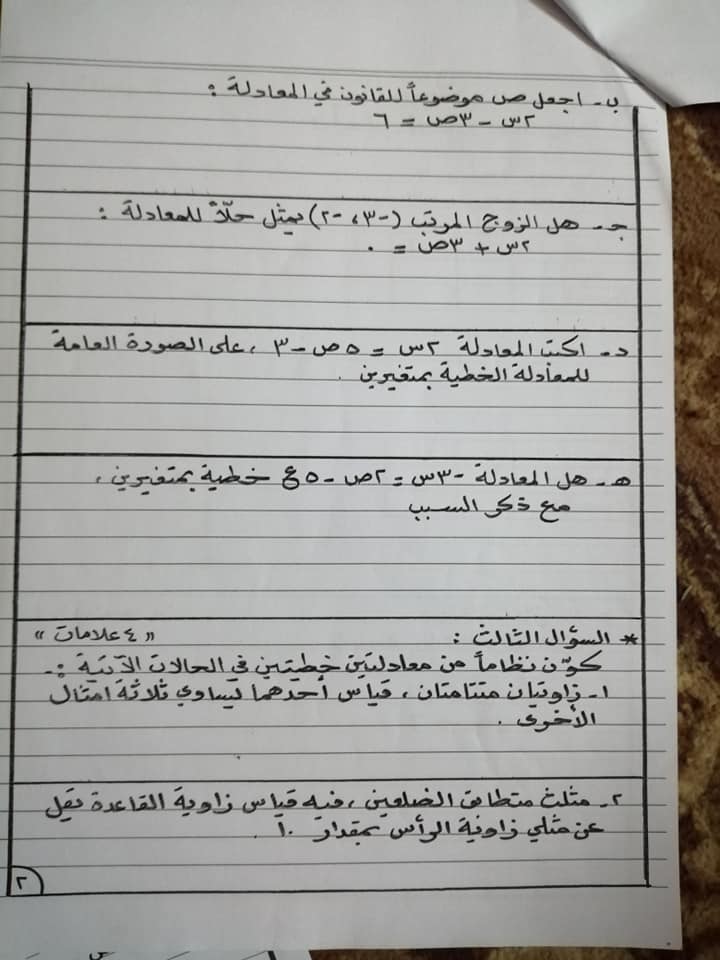 ب- اجعل ص موضوعاً للقانون في المعادلة :
٢س - ٣ص = ٦
جـ- هل الزوج المرتب (-٣، -٢) يمثل حلّاً للمعادلة :
٢س + ٣ص = ٠
د- اكتب المعادلة ٢س = ٥ص - ٣ ، على الصورة العامة
للمعادلة الخطية بمتغيرين .
هـ- هل المعادلة -٣س = ٢ص - ٥ع خطية بمتغيرين ،
مع ذكر السبب
* السؤال الثالث : « ٤ علامات »
كوّن نظاماً من معادلتين خطيتين في الحالات الآتية :-
١- زاويتان متتامتان ، قياس أحدهما يساوي ثلاثة امثال
الأخرى .
٢- مثلث متطابق الضلعين ، فيه قياس زاوية القاعدة يقل
عن مثلي زاوية الرأس بمقدار ١٠ .
٢